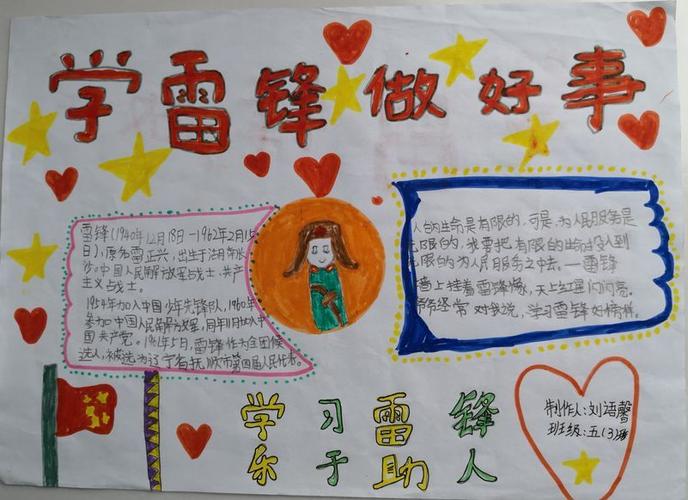 学雷锋做好事
雷锋(1940年12月18日-1962年2月15
日),原名雷正兴,出生于湖南长
沙,中国人民解放军战士、共产
主义战士。
1954年加入中国少年先锋队,1960年
参加中国人民解放军,同年11月加入中
国共产党。1961年5月,雷锋作为全团候
选人,被选为辽宁省抚顺市第四届人民代表。
人的生命是有限的,可是,为人民服务是
无限的,我要把有限的生命投入到
无限的为人民服务之中去。——雷锋
墙上挂着雷锋像,天上红星闪闪亮。
爷爷经常对我说,学习雷锋好榜样。
学习雷锋
乐于助人
制作人:刘语馨
班级:五(3)班